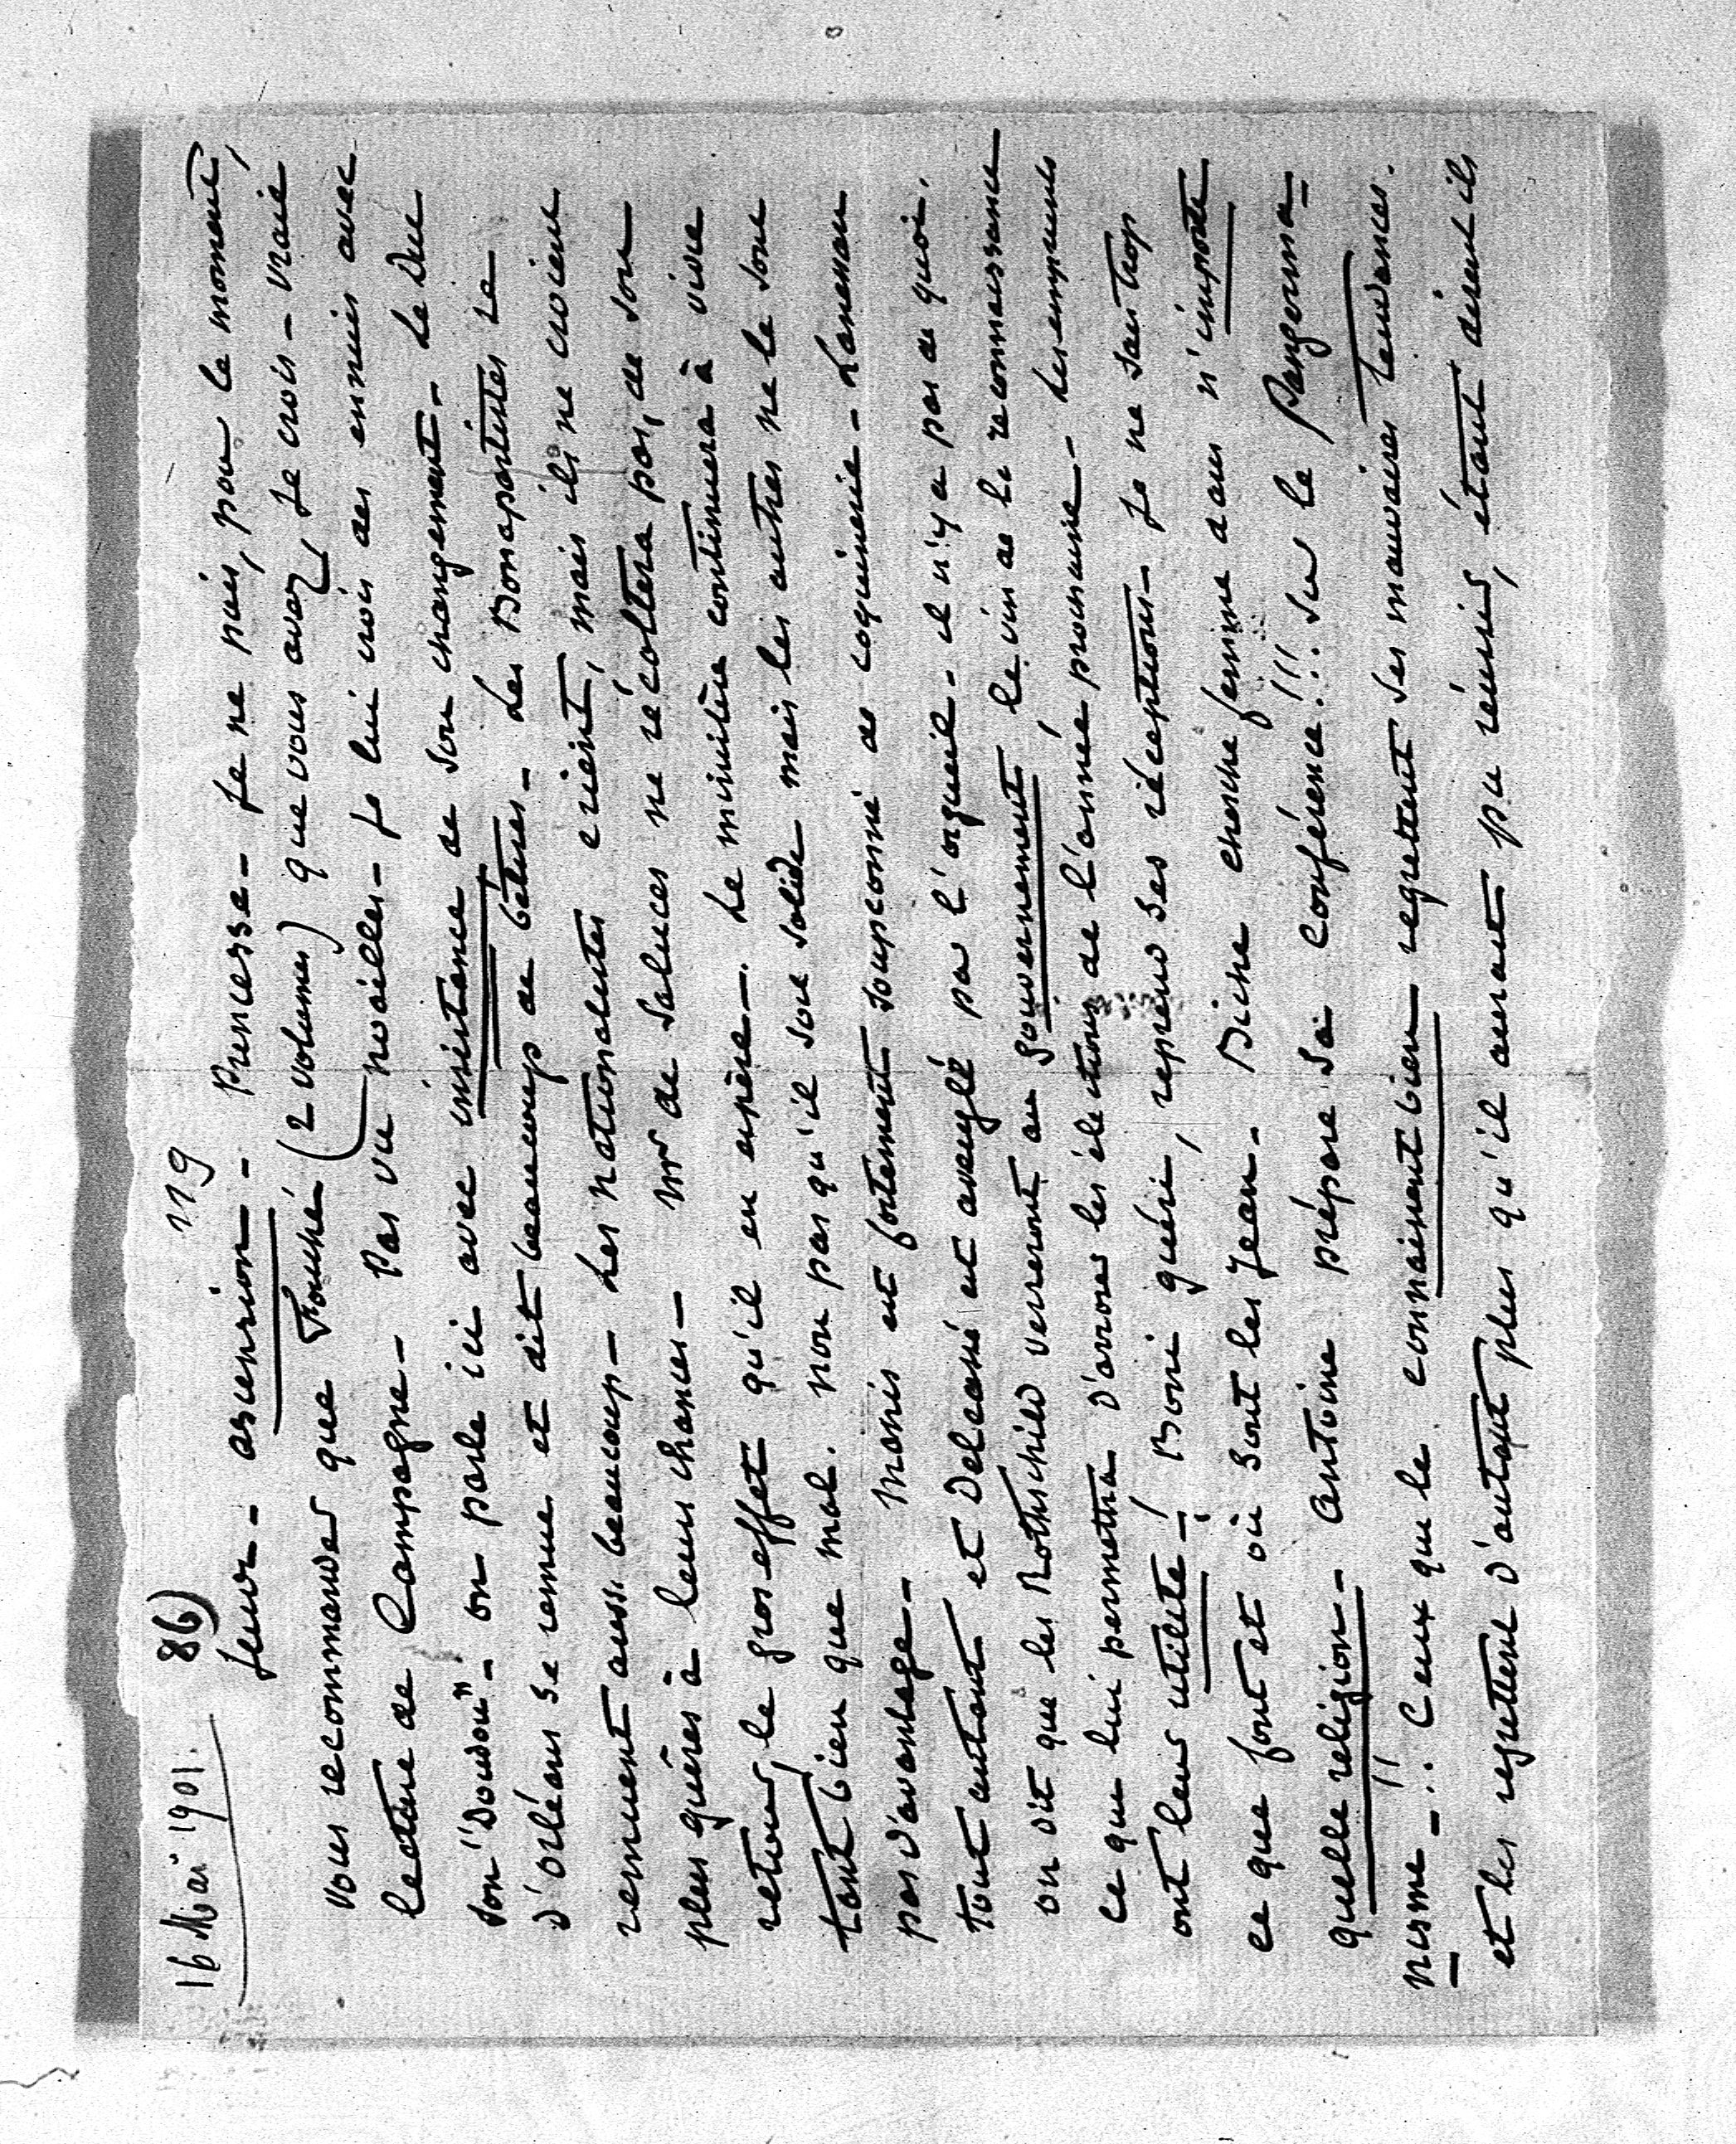 16 Mai 1901. 86) 119
Jeudi - ascension - Princesse - Je ne puis, pour le moment,
vous recommander que Fouché (2 volumes) que vous avez, je crois - vraie
lecture de Campagne - Pas vu noailles - Je lui crois des ennuis avec
son "Doudou" - on parle ici avec insistance de son changement - Le Duc
d'orléans se remue et dit beaucoup de bêtises - Les Bonapartistes se
remuent aussi beaucoup - Les nationalistes crient, mais ils ne croient
plus guères à leurs chances - Mr de Saluces ne récoltera pas, de son
retour, le gros effet qu'il en espère - Le ministère continuera à vivre
tant bien que mal. non pas qu'il soit solide mais les autres ne le sont
pas d'avantage - Monis est fortement soupçonné de coquinerie - Lanessan
tout autant et Delcassé est aveuglé par l'orgueil - il n'y a pas de quoi.
on dit que les Rothschild verseront au gouvernement, le vin de la reconnaissance
ce qui lui permettra d'arroser les élections de l'année prochaine - Les emprunts
ont leur utilité - ! Boni guéri, reprend ses réceptions - Je ne sais trop
ce que font et où sont les Jean - Biche cherche femme dans n'importe
quelle religion - antoine prépare sa conférence !!! Sur le Pangerma=
nisme - !! Ceux qui le connaissent bien regrettent ses mauvaises tendances.
et les regrettent d'autant plus qu'il aurait pu réussir, étant disent ils